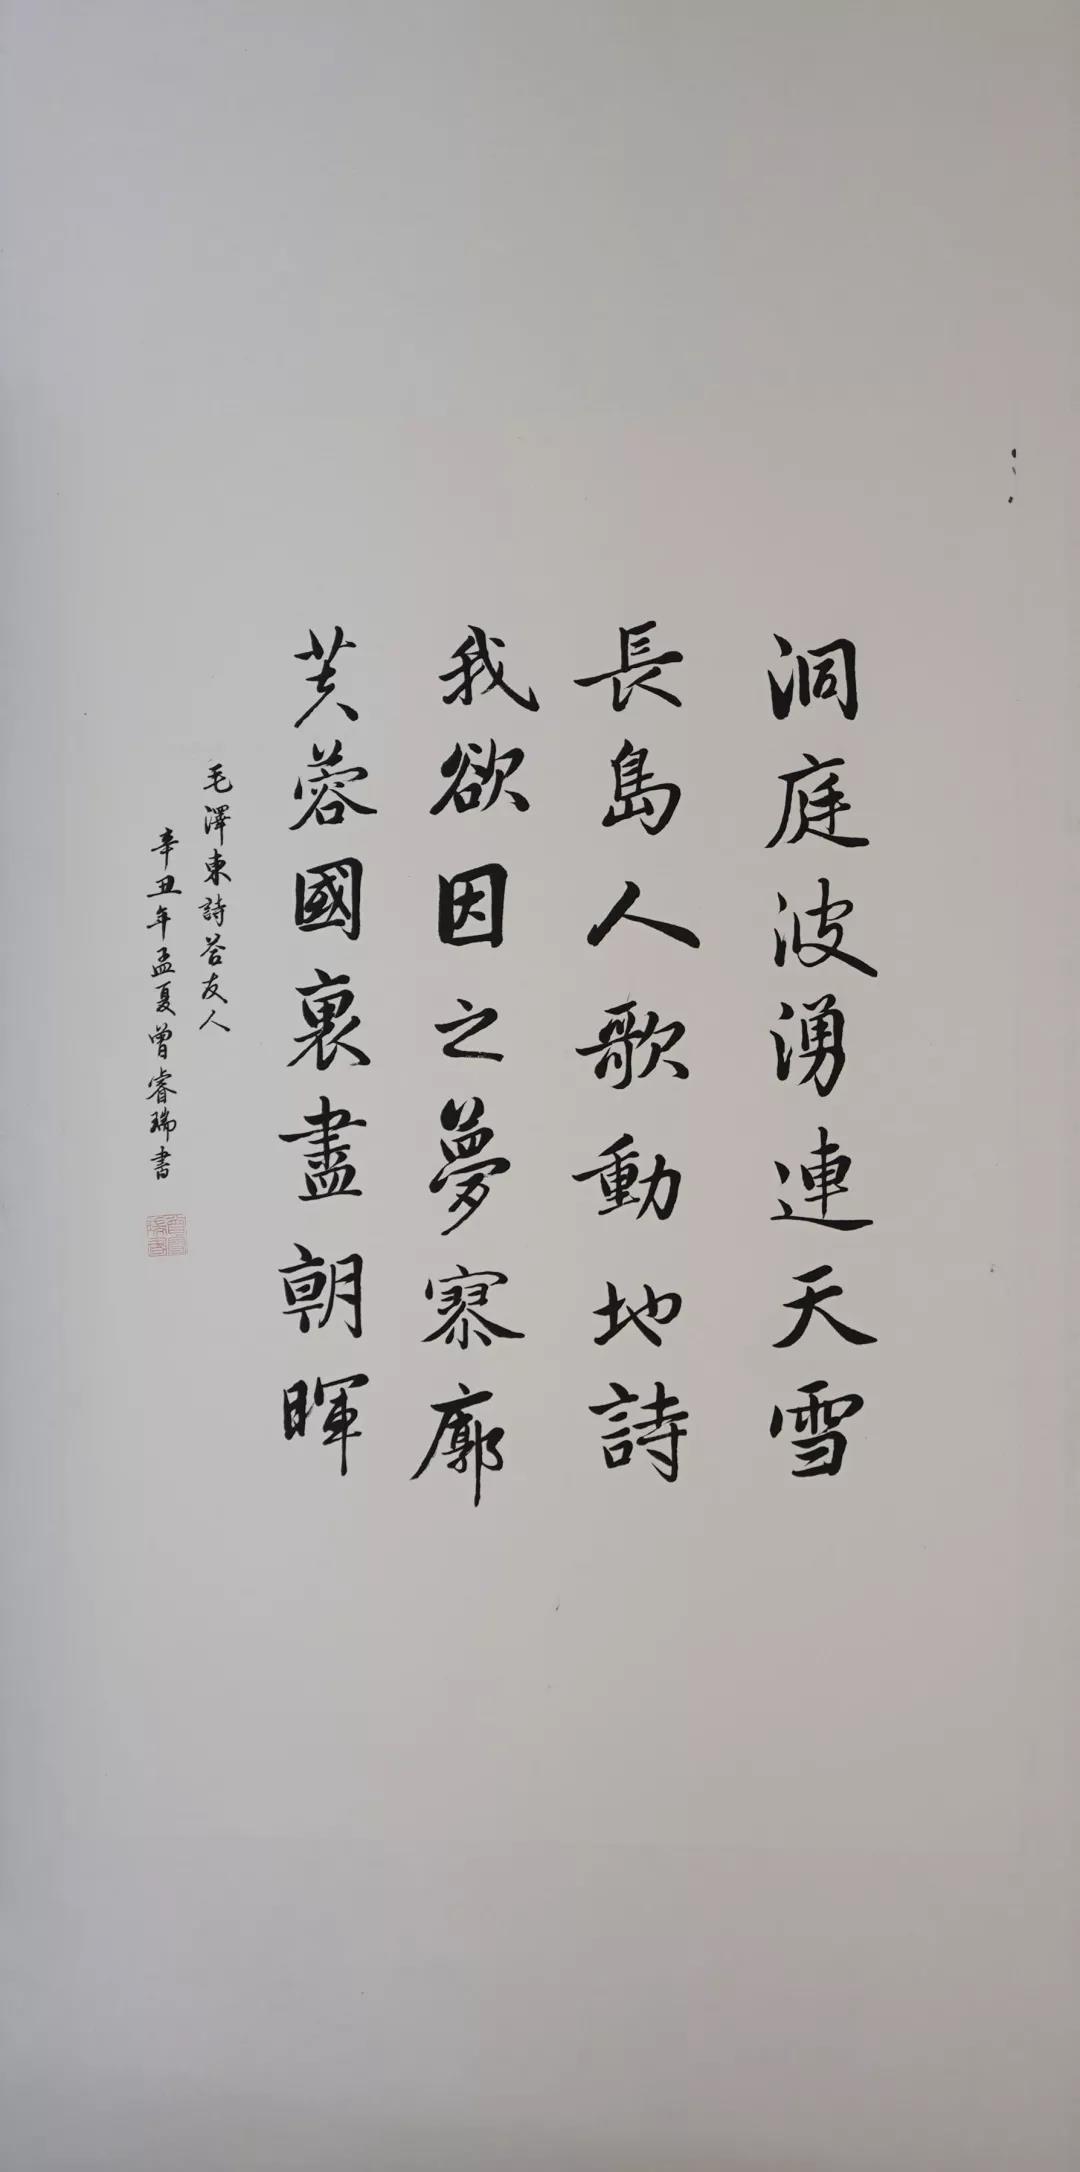 洞庭波湧連天雪
長島人歌動地詩
我欲因之夢寥廓
芙蓉國裏盡朝暉
毛澤東詩答友人
辛丑年孟夏曾睿瑞書